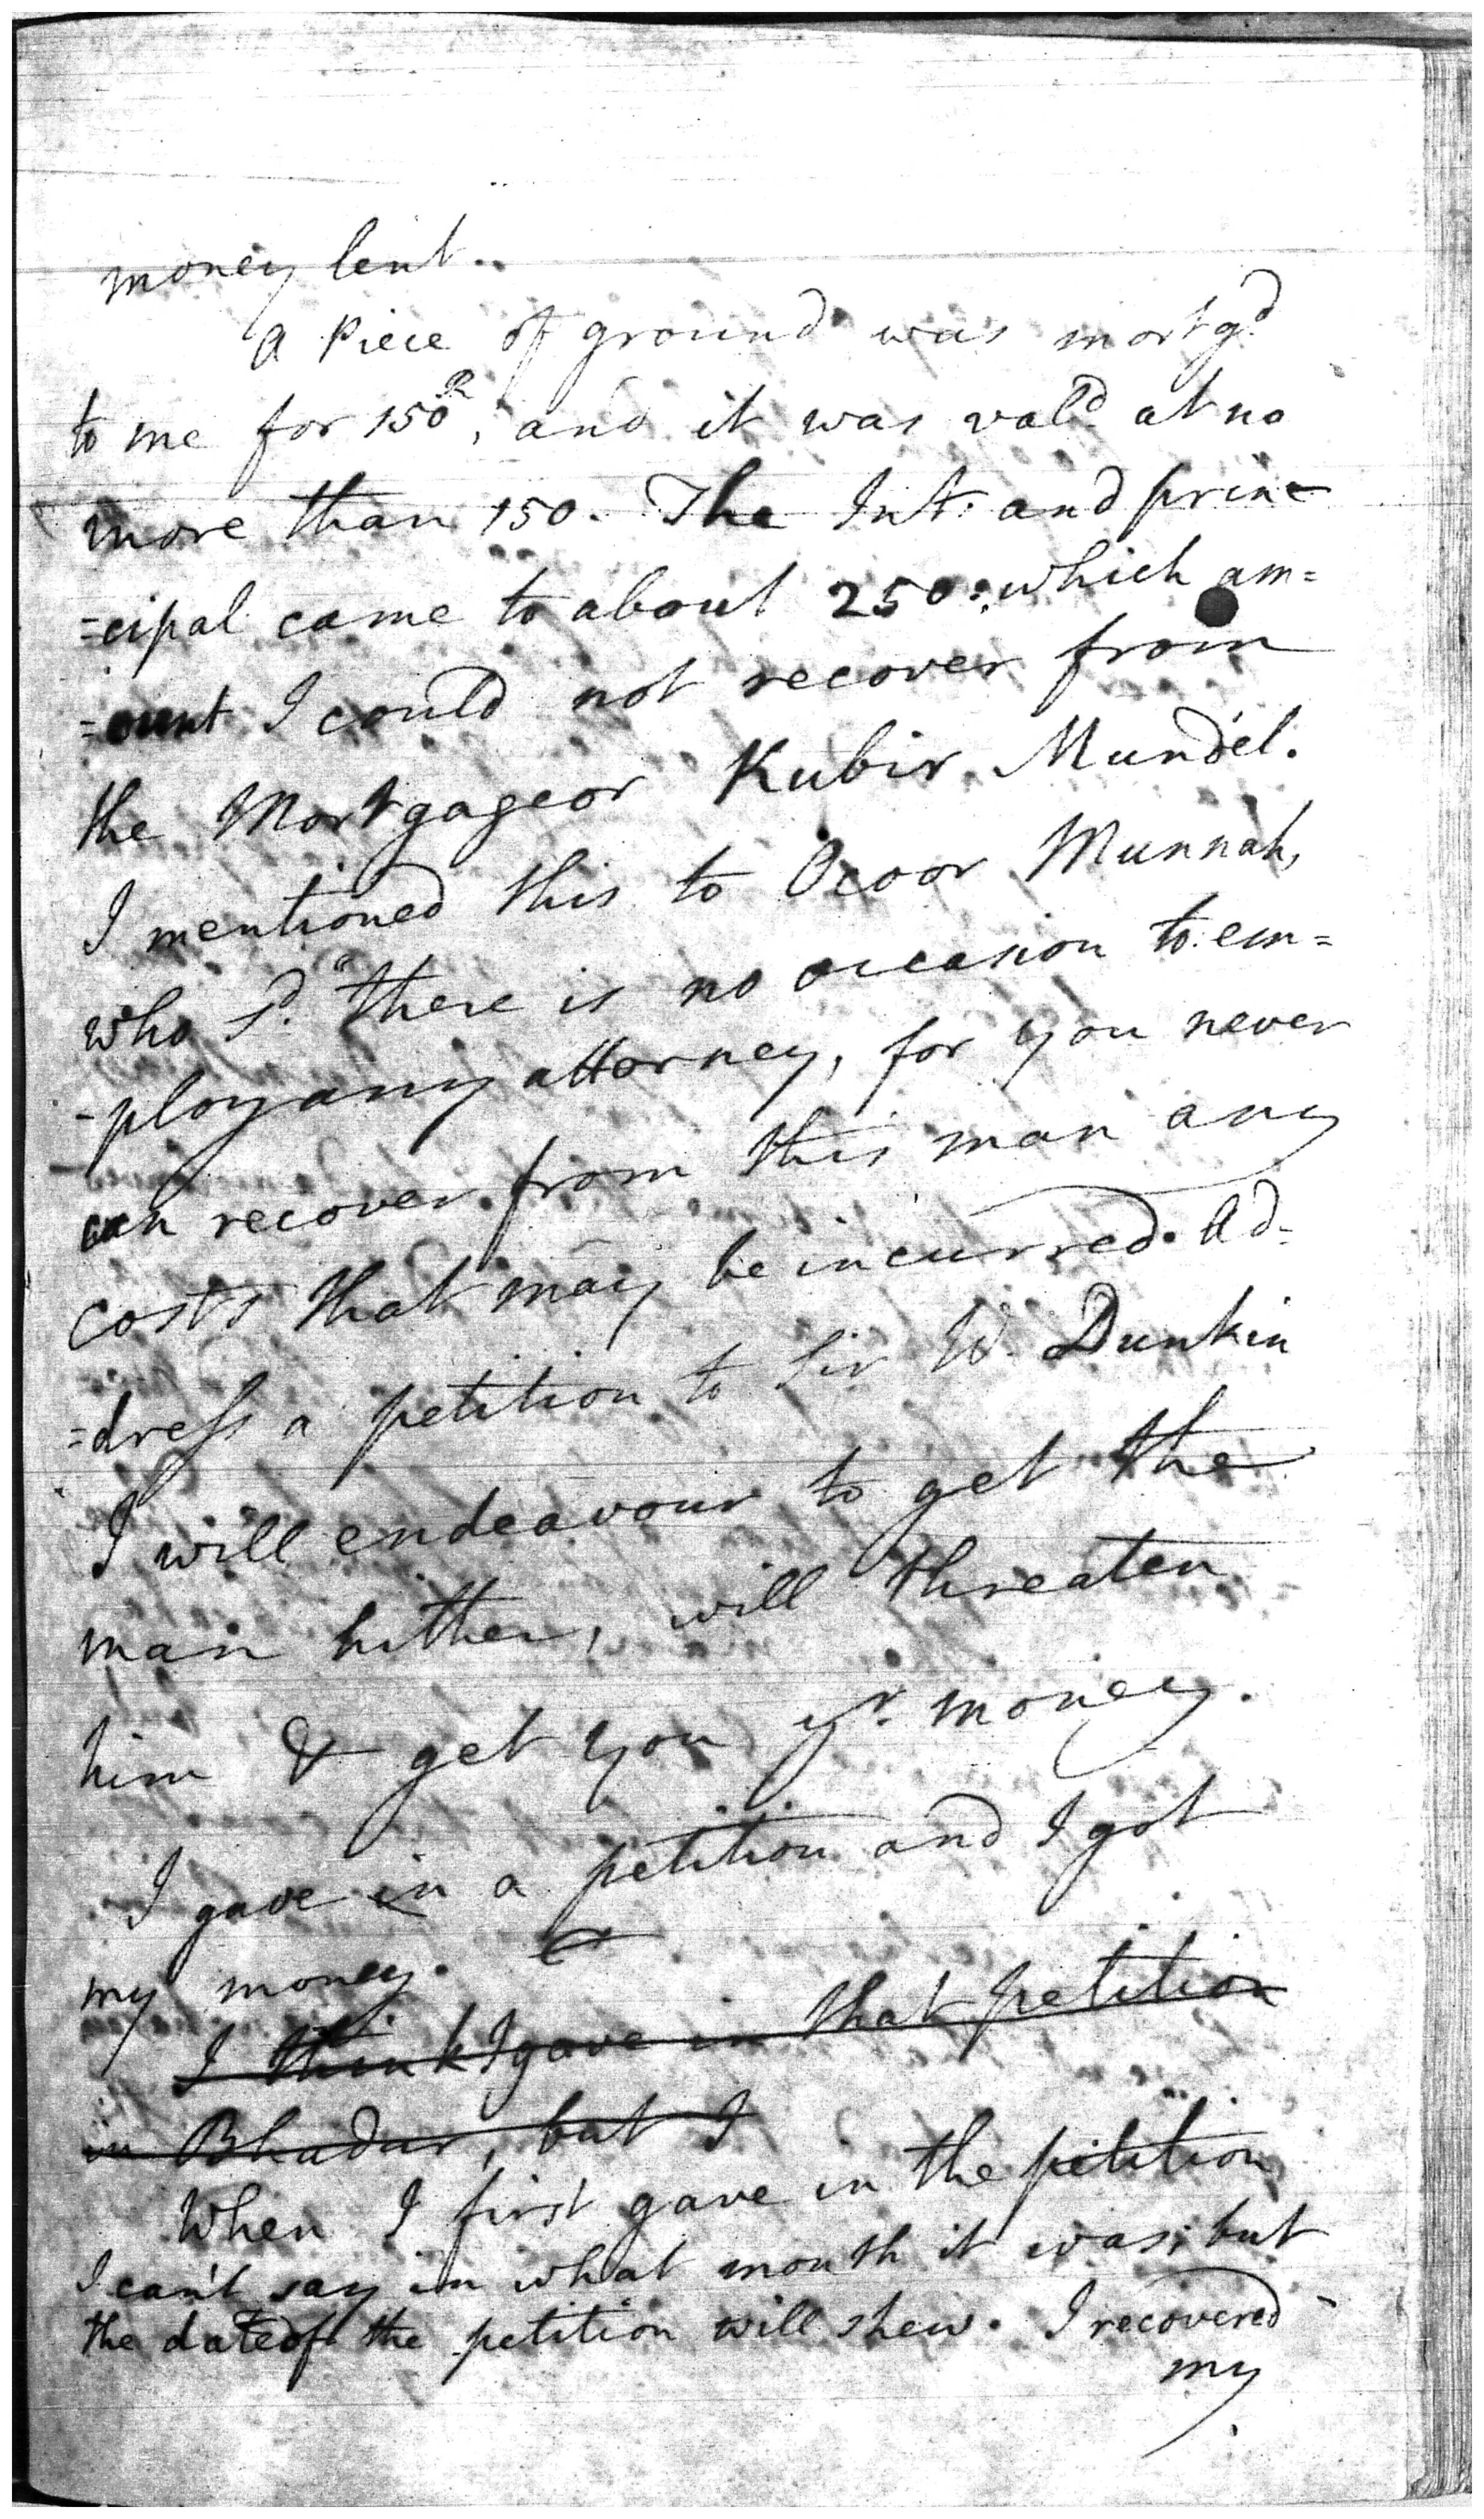 money lent..
A Piece of ground was mortgd
to me for 150R, and it was vald. at no
more than 150. The Int: and prin=
=cipal came to about 250: which am=
=ount I could not recover from
the Mortgageor Kubir Mundel.
I mentioned this to Ocoor Munnah,
who Sd. "there is no occasion to em=
-ploy any attorney, for you never
can recover from this man any
costs that may be incurred. Ad=
=dress a petition to Sir W. Dunkin
I will endeavour to get the
man hither, will threaten
him & get you yr. money.
I gave in a petition and I got
my money.
I think I gave in that petition
in Bhadur, but I
When I first gave in the petition
I can't say in what month it was; but
the date of the petition will shew. I recovered
my